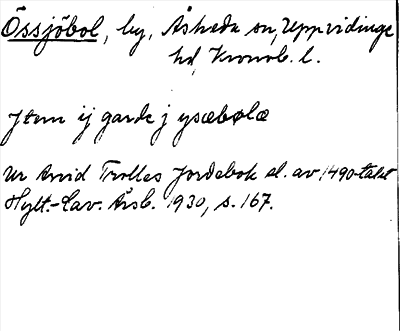 Össjöbol, by, Åsheda sn, Uppvidinge
hd, Kronob. l.
Item ij garde j ysæbolæ
Ur Arvid Trolles Jordebok sl. av 1490-talet
Hylt.-Cav. Årsb. 1930, s. 167.